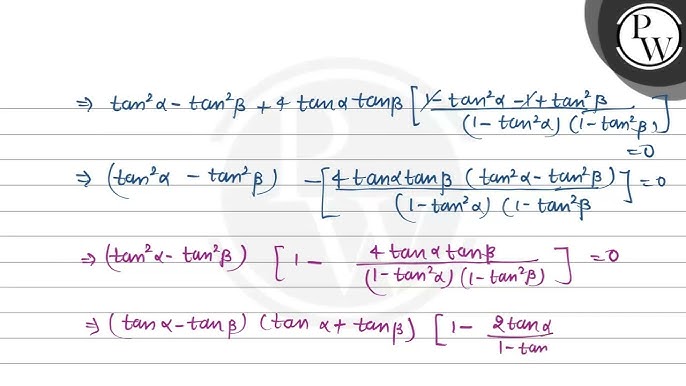 P
W
⇒ tan²α - tan²β + 4 tanα tanβ [ 1 - tan²α - 1 + tan²β / (1 - tan²α) (1 - tan²β) ]
= 0
⇒ (tan²α - tan²β) - [ 4 tanα tanβ (tan²α - tan²β) / (1 - tan²α) (1 - tan²β ] = 0
⇒ (tan²α - tan²β) [ 1 - 4 tanα tanβ / (1 - tan²α) (1 - tan²β) ] = 0
⇒ (tanα - tanβ) (tan α + tanβ) [ 1 - 2 tanα / 1 - tan